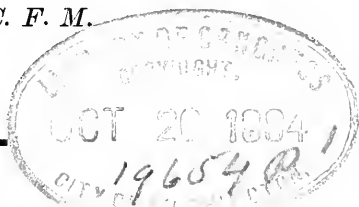 C. F. M.
OF CONGRESS
COPYRIGHT.
OCT 20 1884
19654
CITY